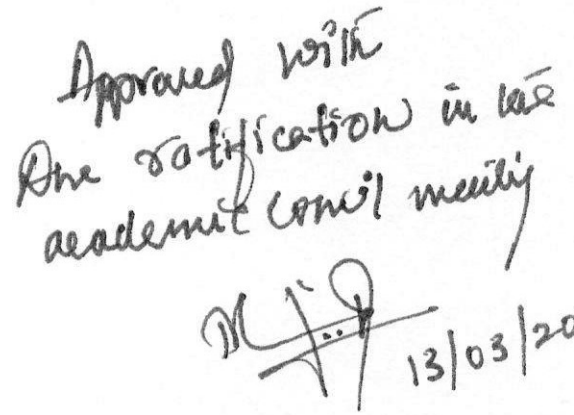 Approved with
Due ratification in the
academic council meeting
13/03/20